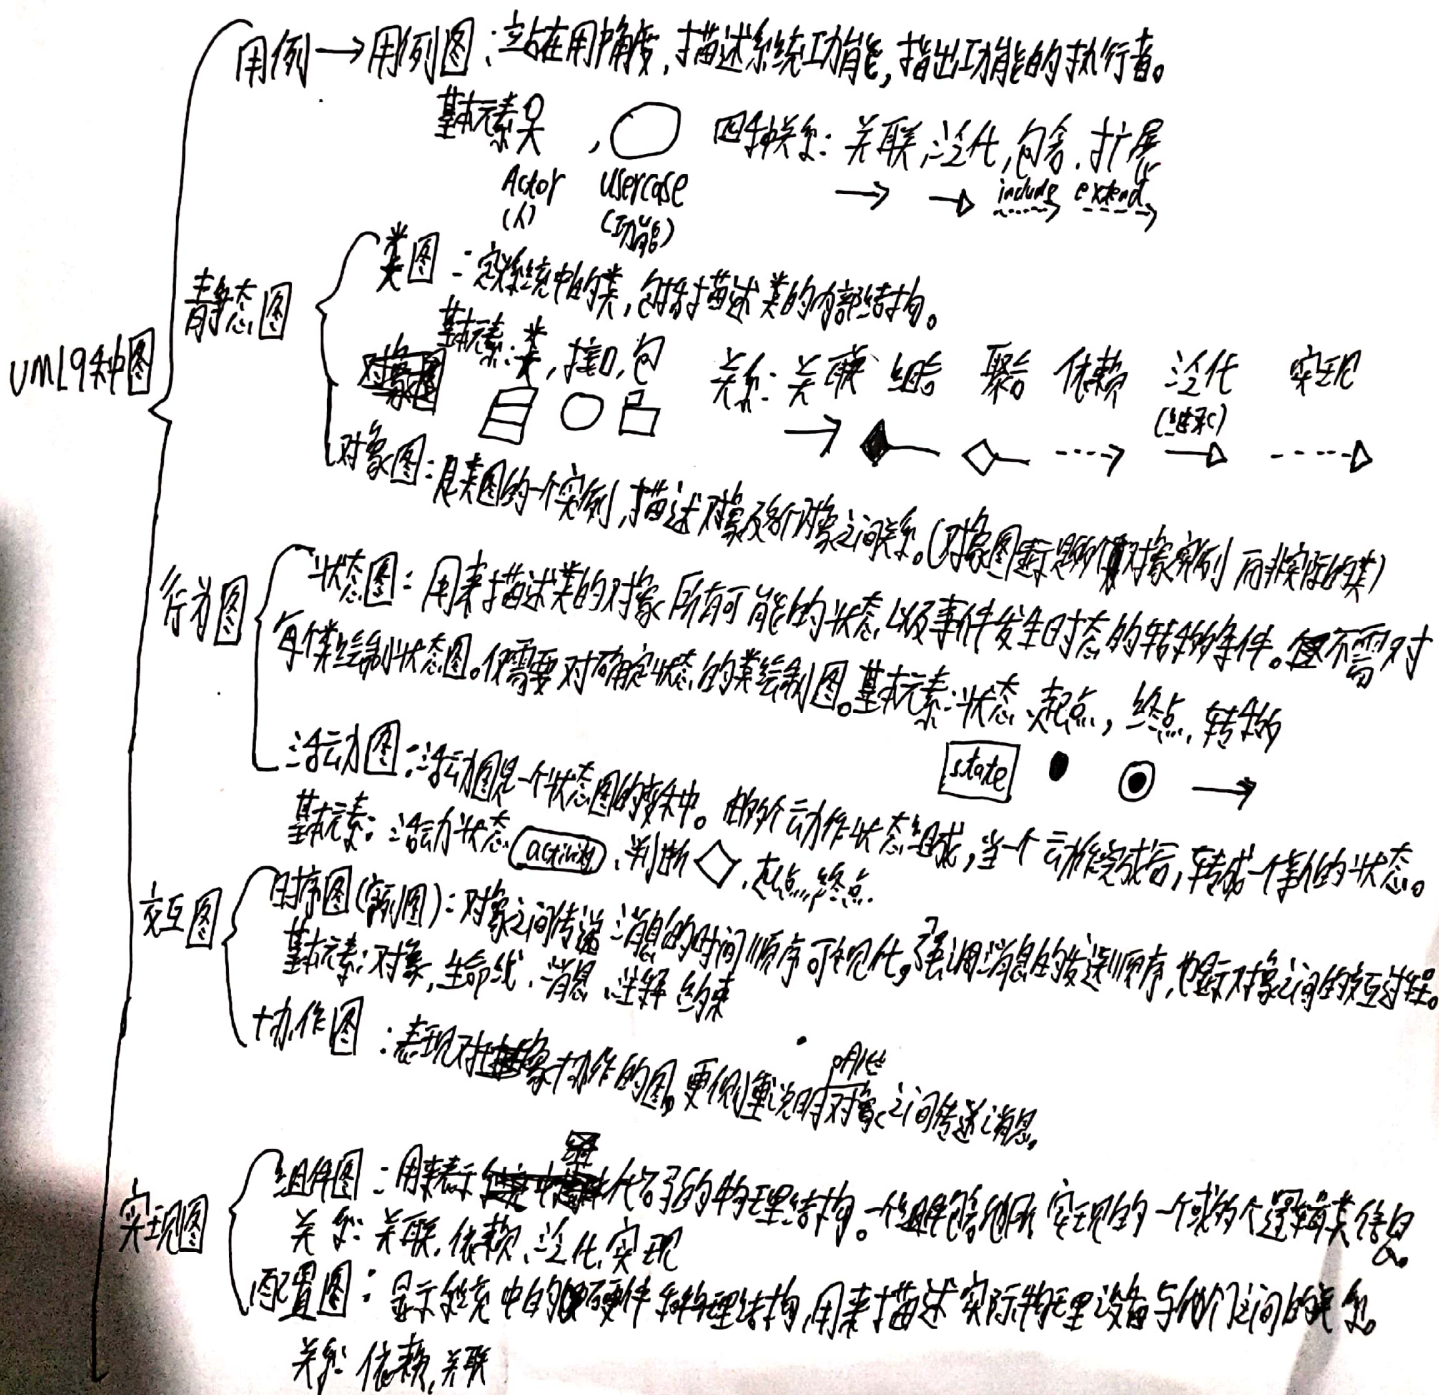 用例→用例图：站在用户角度，描述系统功能，指出功能的执行者。
基本元素 ，
四种关系：关联，泛化，包含，扩展
Actor usercase include extend
(人) (功能)
静态图
类图：定义系统中的类，包括描述类的内部结构。
基本元素：类，接口，包
关系：关联 组合 聚合 依赖 泛化 实现
(继承)
UML9种图
对象图：是类图的一个实例，描述对象及对象之间关系。(对象图显示类的对象实例而非实际的类)
行为图
状态图：用来描述类的对象所有可能的状态以及事件发生时状态的转移条件。不需对
每个类绘制状态图。仅需要对确定状态的类绘制图。基本元素：状态、起点，终点，转移
state
活动图：活动图是一个状态图的变种。由多个动作状态组成，当一个动作完成后，转成一个新的状态。
基本元素：活动状态 activity、判断、起点，终点.
交互图
时序图(序列图)：对象之间传递消息的时间顺序可视化，强调消息的发送顺序，也显示对象之间的交互过程。
基本元素：对象，生命线，消息，注释 约束
协作图：表现对象协作的图，更侧重说明对象之间传递消息。
实现图
组件图：用来表示代码的物理结构。一个组件包含它所实现的一个或多个逻辑类信息。
关系：关联，依赖、泛化，实现
配置图：显示系统中的硬件和物理结构，用来描述实际物理设备与他们之间的关系。
关系：依赖，关联